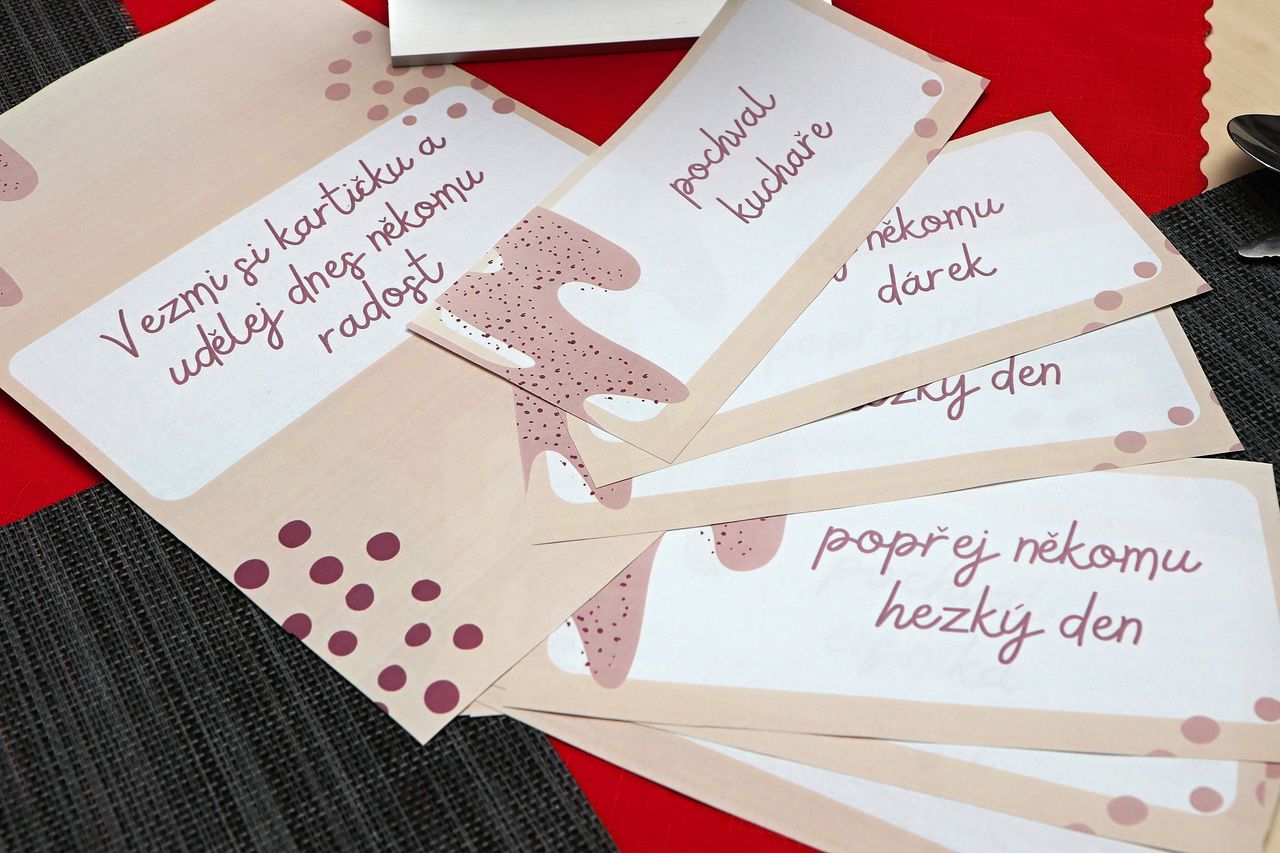 Vezmi si kartičku a
udělej dnes někomu
radost
pochval
kuchaře
někomu
dárek
den
popřej někomu
hezký den